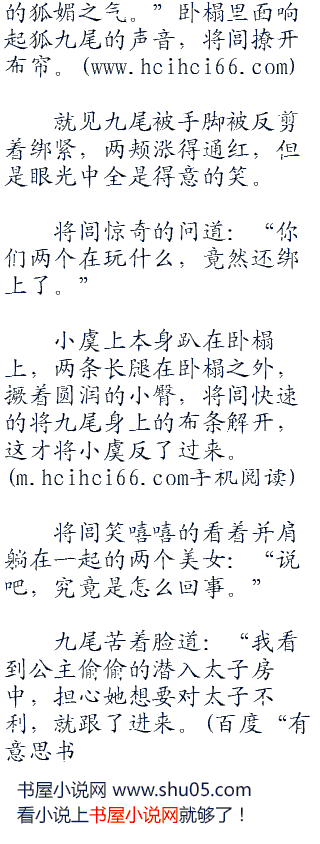 的狐媚之气。”卧榻里面响
起狐九尾的声音，将闾撩开
布帘。(www.hcihci66.com)
就见九尾被手脚被反剪
着绑紧，两颊涨得通红，但
是眼光中全是得意的笑。
将闾惊奇的问道：“你
们两个在玩什么，竟然还绑
上了。”
小虞上本身趴在卧榻
上，两条长腿在卧榻之外，
撅着圆润的小臀，将闾快速
的将九尾身上的布条解开，
这才将小虞反了过来。
(m.hcihci66.com手机阅读)
将闾笑嘻嘻的看着并肩
躺在一起的两个美女：“说
吧，究竟是怎么回事。”
九尾苦着脸道：“我看
到公主偷偷的潜入太子房
中，担心她想要对太子不
利，就跟了进来。(百度“有
意思书
书屋小说网 www.shu05.com
看小说上书屋小说网就够了！